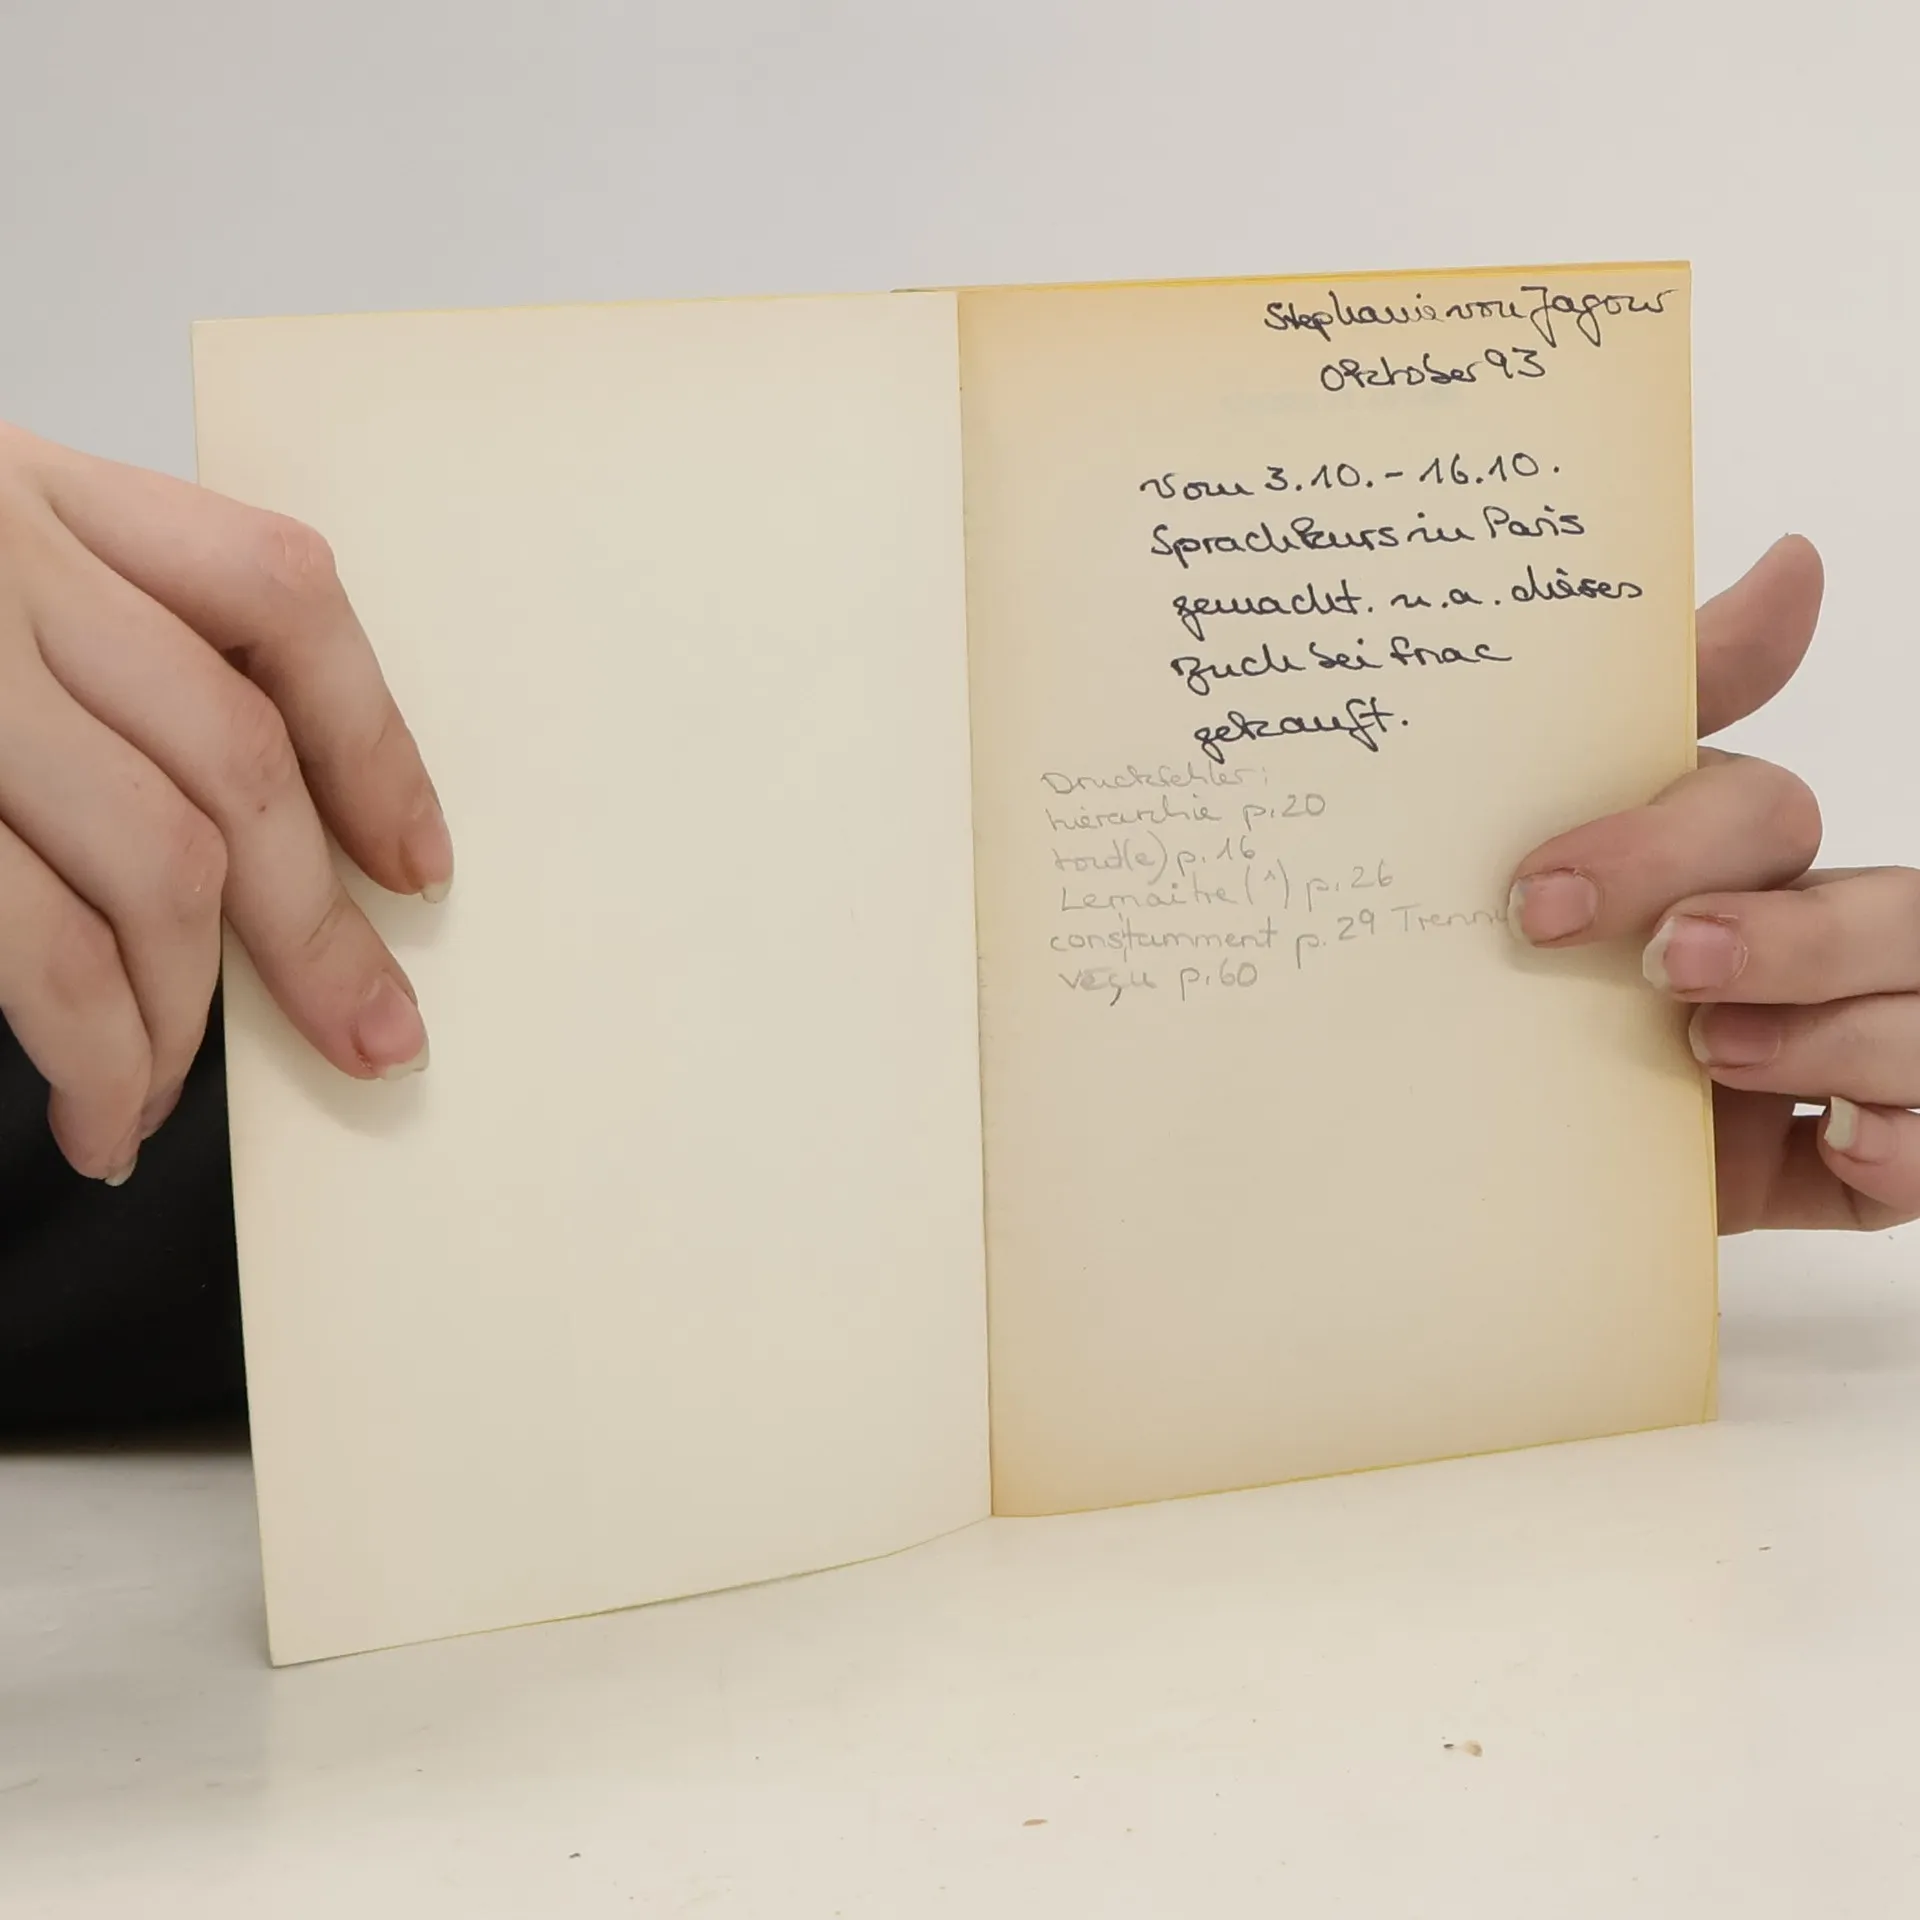 Stephanie von Jagow
Oktober 93
Vom 3.10.-16.10.
Sprachkurs in Paris
gemacht. u.a. dieses
Buch bei fnac
gekauft.
Druckfehler:
hiérarchie p.20
tout(e) p.16
Lemaitre (^) p.26
constamment p.29
veçu p.60